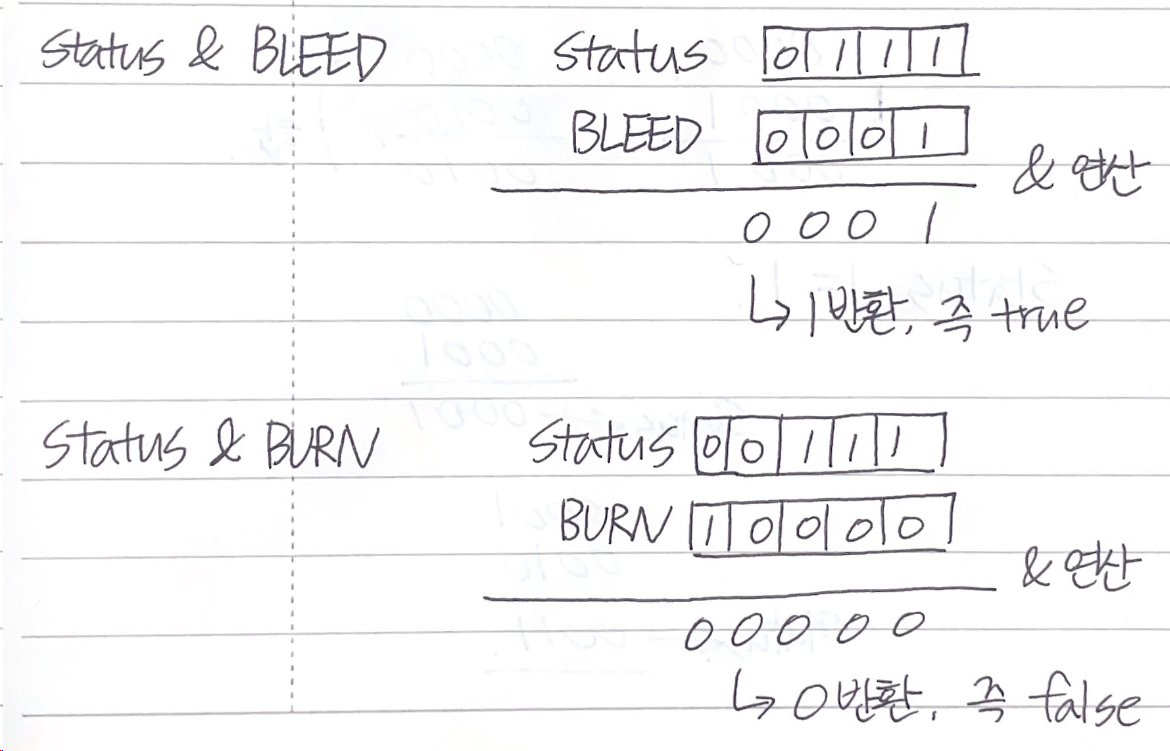 Status & BLEED
Status 0 1 1 1
BLEED 0 0 0 1
& 연산
0 0 0 1
↳ 1 반환, 즉 true
Status & BURN
Status 0 0 1 1 1
BURN 1 0 0 0 0
& 연산
0 0 0 0 0
↳ 0 반환, 즉 false